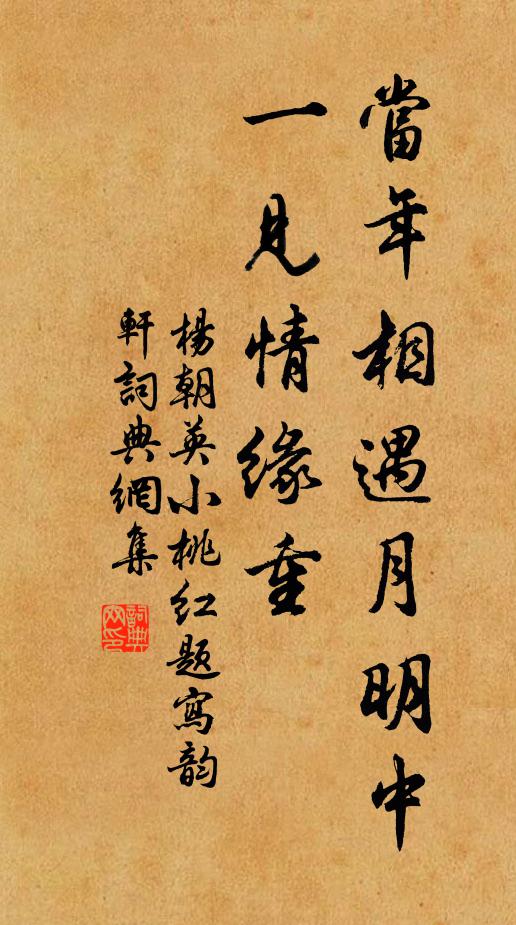 當年相遇月明中
一見情緣重
楊朝英小桃紅題寫韵
軒詞典網集
詞典网印